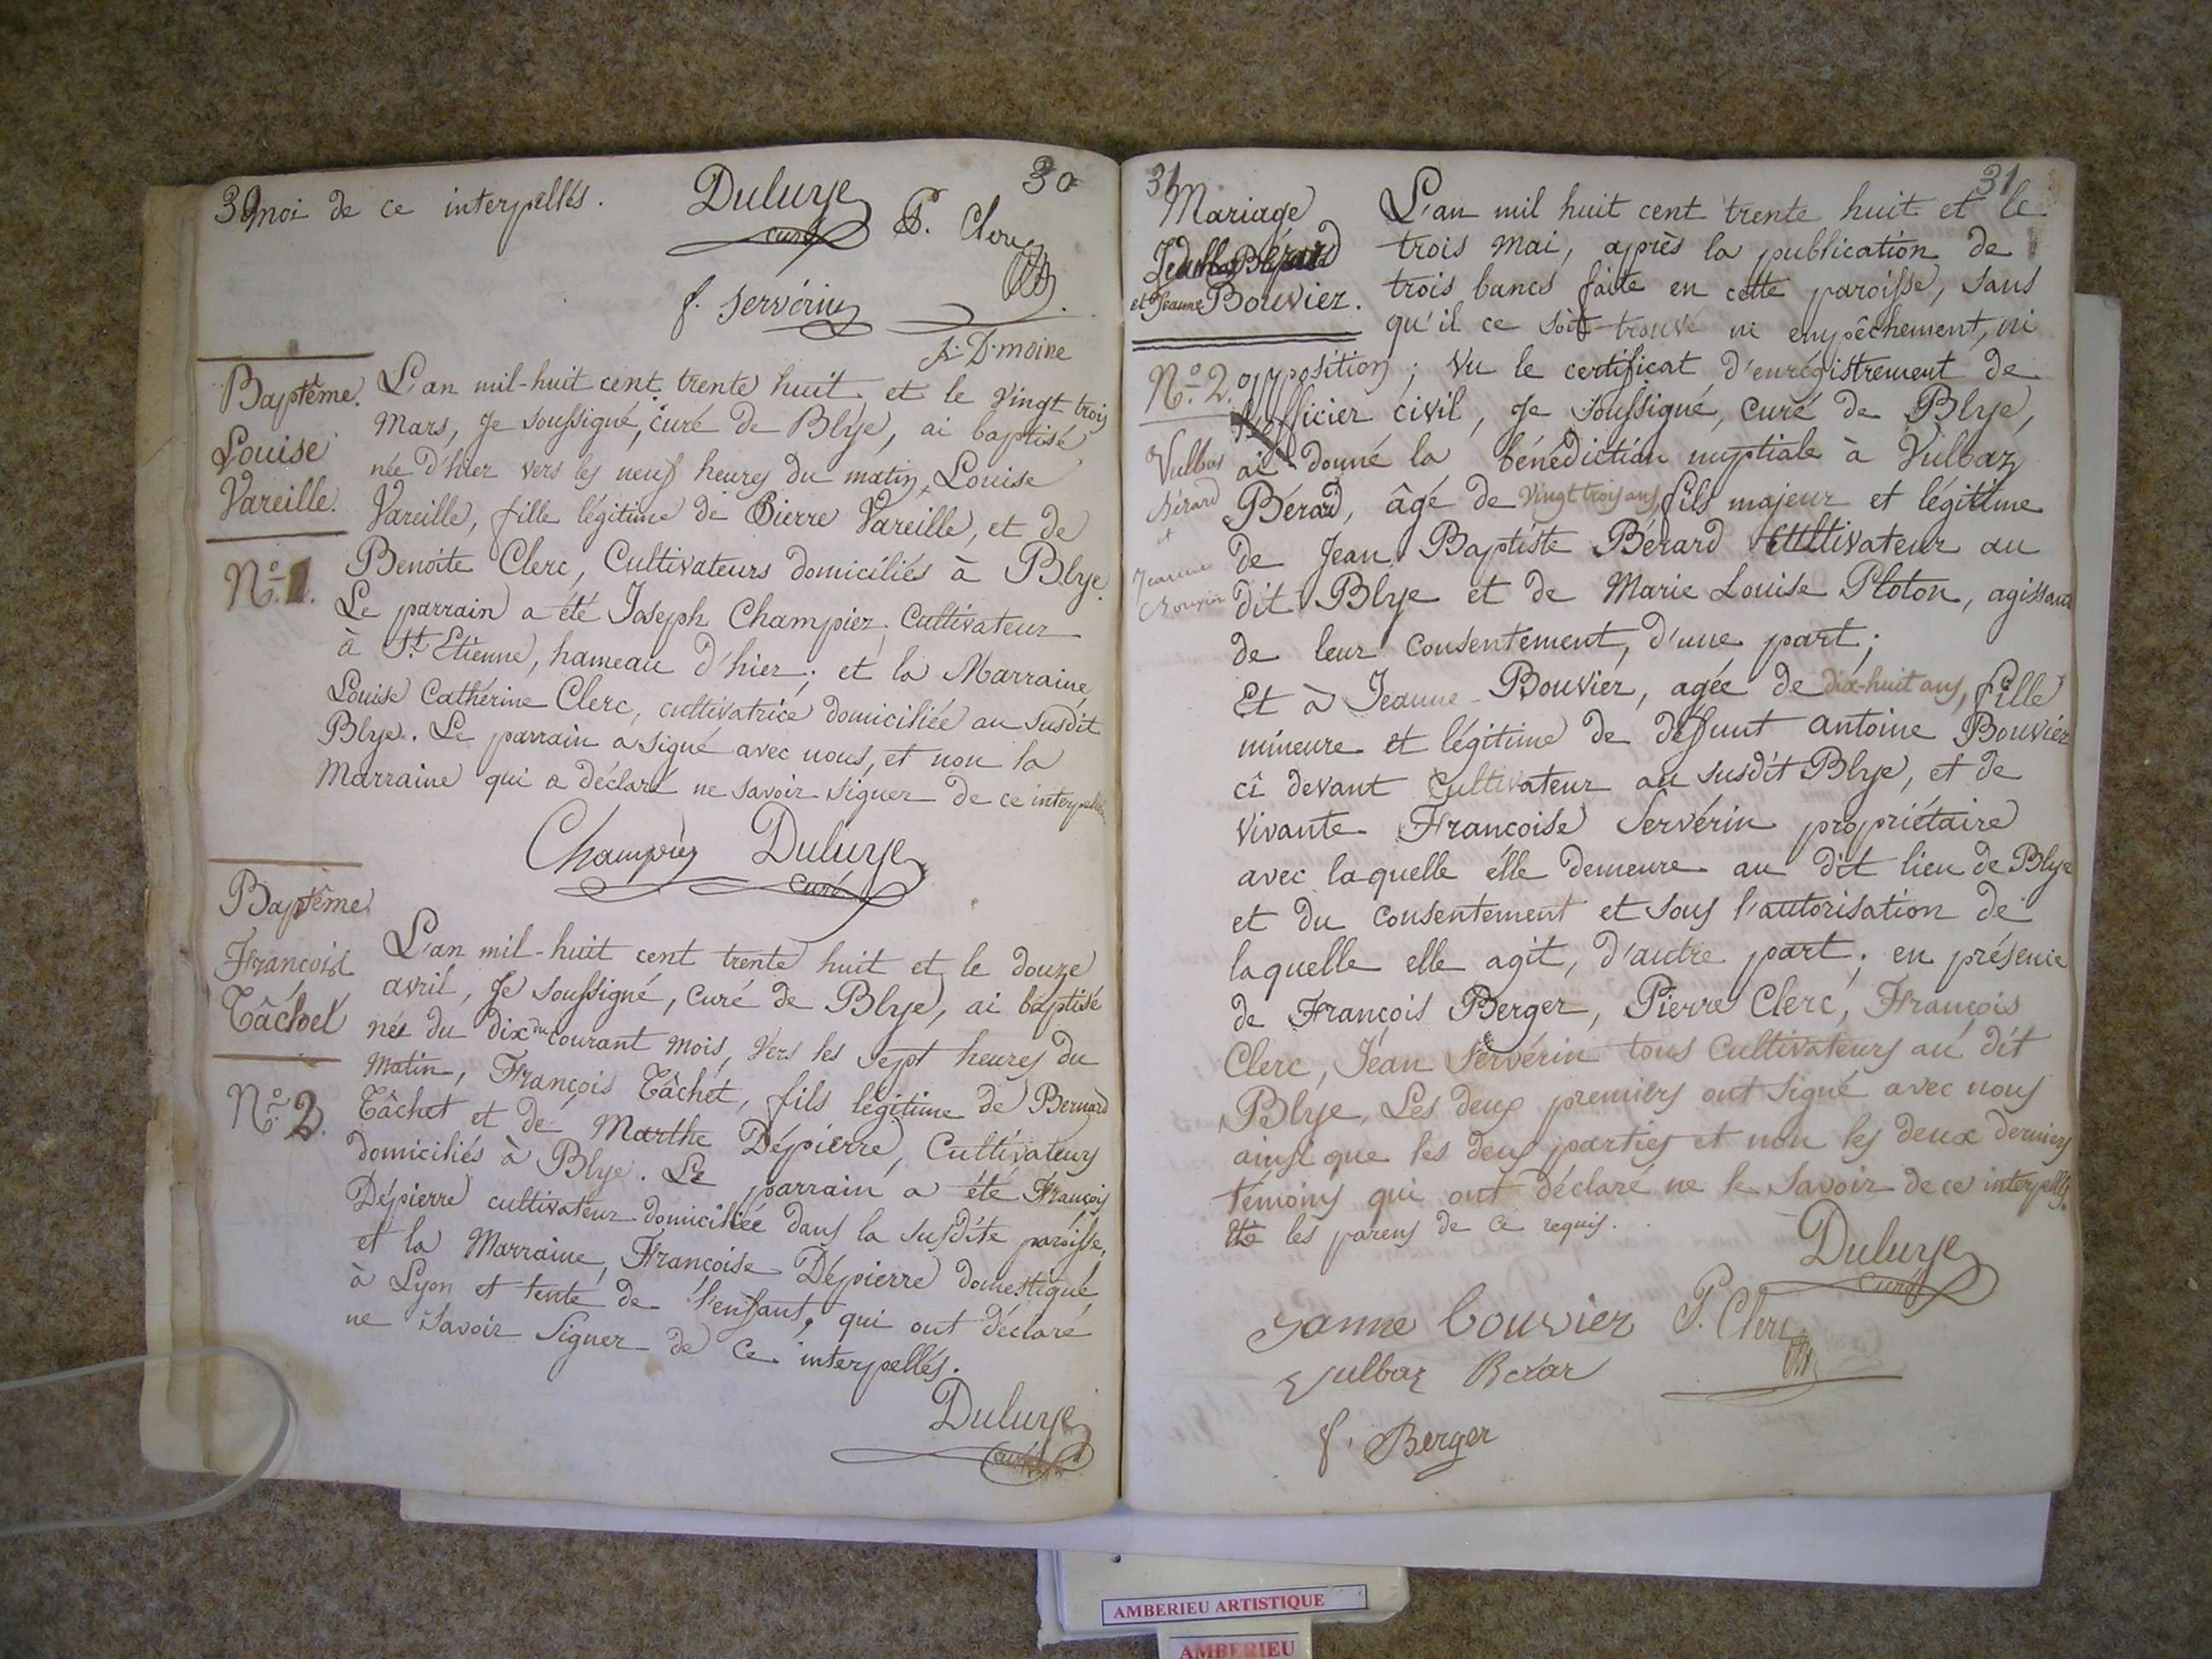 30 moi de ce interpellés. 30
Duluye
curé
P. Clerc
f. servérin
D. moine
Baptême.
Louise
Vareille.
N.o 1.
L'an mil-huit cent trente huit et le vingt trois
Mars, Je soussigné, curé de Blye, ai baptisé
née d'hier vers les neuf heures du matin, Louise
Vareille, fille légitime de Pierre Vareille, et de
Benoite Clerc, Cultivateurs domiciliés à Blye.
Le parrain a été Joseph Champier, Cultivateur
à St. Etienne, hameau d'hier; et la Marraine,
Louise Catherine Clerc, cultivatrice domiciliée au susdit
Blye. Le parrain a signé avec nous, et non la
Marraine qui a déclaré ne savoir signer de ce interpellée
Champier Duluye
curé
Baptême
François
Tâchet
N.o 2.
L'an mil-huit cent trente huit et le douze
avril, Je soussigné, curé de Blye, ai baptisé
né du dix du courant mois, vers les sept heures du
matin, François Tâchet, fils légitime de Bernard
Tâchet et de Marthe Dépierre, Cultivateurs
domiciliés à Blye. Le parrain a été François
Dépierre cultivateur domiciliée dans la susdite paroisse,
et la Marraine, Françoise Dépierre domestique
à Lyon et tente de l'enfant, qui ont déclaré
ne savoir signer de ce interpellés.
Duluye
curé
31 31
Mariage
Bérard
et Jeanne Bouvier.
N.o 2.
Vulbas
Bérard
et
Jeanne
Bouvier
L'an mil huit cent trente huit et le
trois mai, après la publication de
trois bancs faite en cette paroisse, sans
qu'il ce soit trouvé ni empêchement, ni
opposition; Vu le certificat d'enrégistrement de
l'officier civil, Je soussigné, curé de Blye,
ai donné la bénédiction nuptiale à Vulbaz
Bérard, âgé de vingt trois ans, fils majeur et légitime
de Jean Baptiste Bérard Cultivateur au
dit Blye et de Marie Louise Ploton, agissant
de leur consentement, d'une part;
Et à Jeanne Bouvier, agée de dix-huit ans, fille
mineure et légitime de défunt antoine Bouvier
ci devant cultivateur au susdit Blye, et de
vivante Francoise Servérin propriétaire
avec laquelle elle demeure au dit lieu de Blye
et du consentement et sous l'autorisation de
laquelle elle agit, d'autre part; en présence
de François Berger, Pierre Clerc, François
Clerc, Jean Servérin tous cultivateurs au dit
Blye, Les deux premiers ont signé avec nous
ainsi que les deux parties et non les deux derniers
témoins qui ont déclaré ne le savoir de ce interpellés
les parens de ce requis.
Duluye
curé
Janne bouvier P. Clerc
Vulbaz Berar
f. Berger
AMBERIEU ARTISTIQUE
AMBERIEU